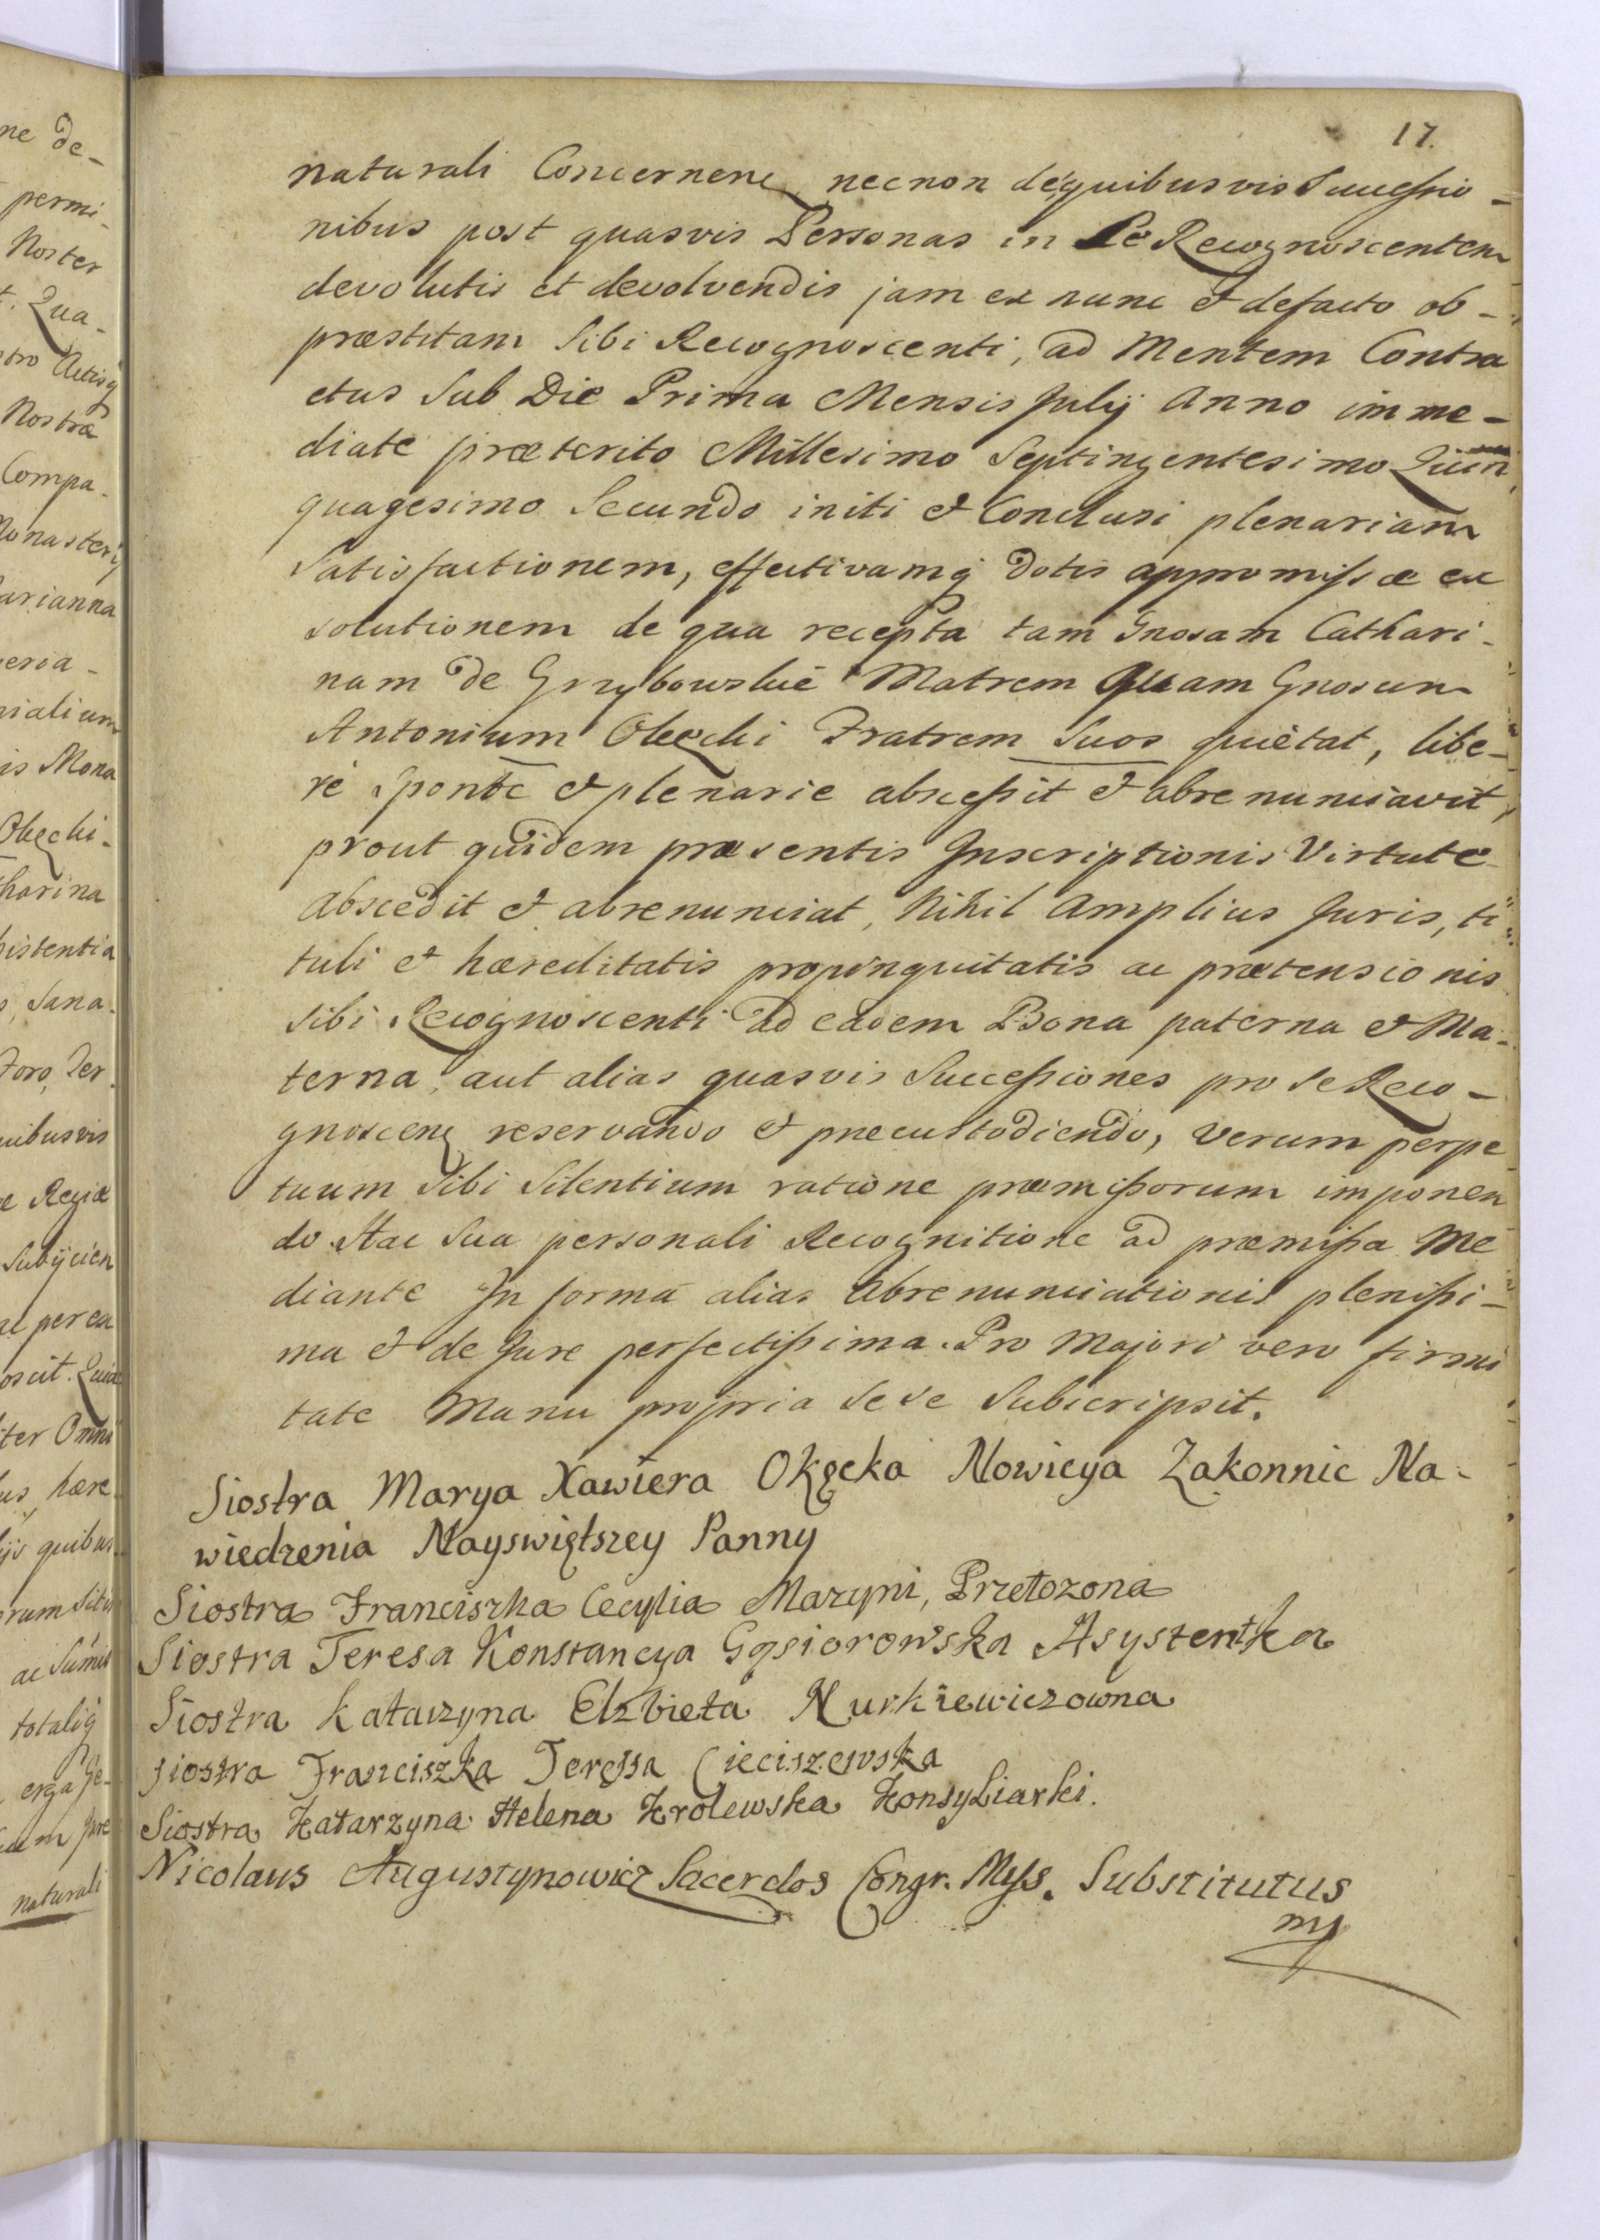 17.
naturali Concernen necnon de quibusvis Successio-
nibus post quasvis Personas in Se Recognoscentem
devolutis et devolvendis jam ex nunc et defacto ob-
præstitam Sibi Recognoscenti, ad Mentem Contra
ctus Sub Die Prima Mensis Julij Anno imme-
diate præterito Millesimo Septingentesimo Quin
quagesimo Secundo initi et Conclusi plenariam
Satisfactionem, effectivamq dotis appromissæ ex
solutionem de qua recepta tam Gnosam Cathari-
nam de Grzybowskie Matrem Quam Gnosum
Antonium Okęcki Fratrem Suos quietat, libe-
re sponte et plenarie abscessit et abrenunciavit,
prout quidem præsentis Inscriptionis Virtute
Abscedit et abrenunciat, Nihil Amplius Juris, ti
tuli et hæreditatis propinquitatis ac prætensionis
Sibi Recognoscenti ad eadem Bona paterna et Ma-
terna, aut alias quasvis Successiones pro se Reco-
gnoscen reservando et præcustodiendo, Verum perpe
tuum Sibi Silentium ratione præmissorum imponen
do Hac Sua personali Recognitione ad præmissa Me
diante In forma alias Abrenunciationis plenissi-
ma et de Jure perfectissima. Pro Majori vero firmi
tate Manu propria Sese Subscripsit.
Siostra Marya Xawiera Okęcka Nowicya Zakonnic Na-
wiedzenia Nayswiętszey Panny
Siostra Franciszka Cecylia Mazyni, Przełozona
Siostra Teresa Konstancya Gąsiorowska Asystentka
Siostra Katarzyna Elzbieta Nurkiewiczowna
Siostra Franciszka Teressa Cieciszewska
Siostra Katarzyna Helena Krolewska Konsyliarki.
Nicolaus Augustynowicz Sacerdos Congr. Miss. Substitutus
mp